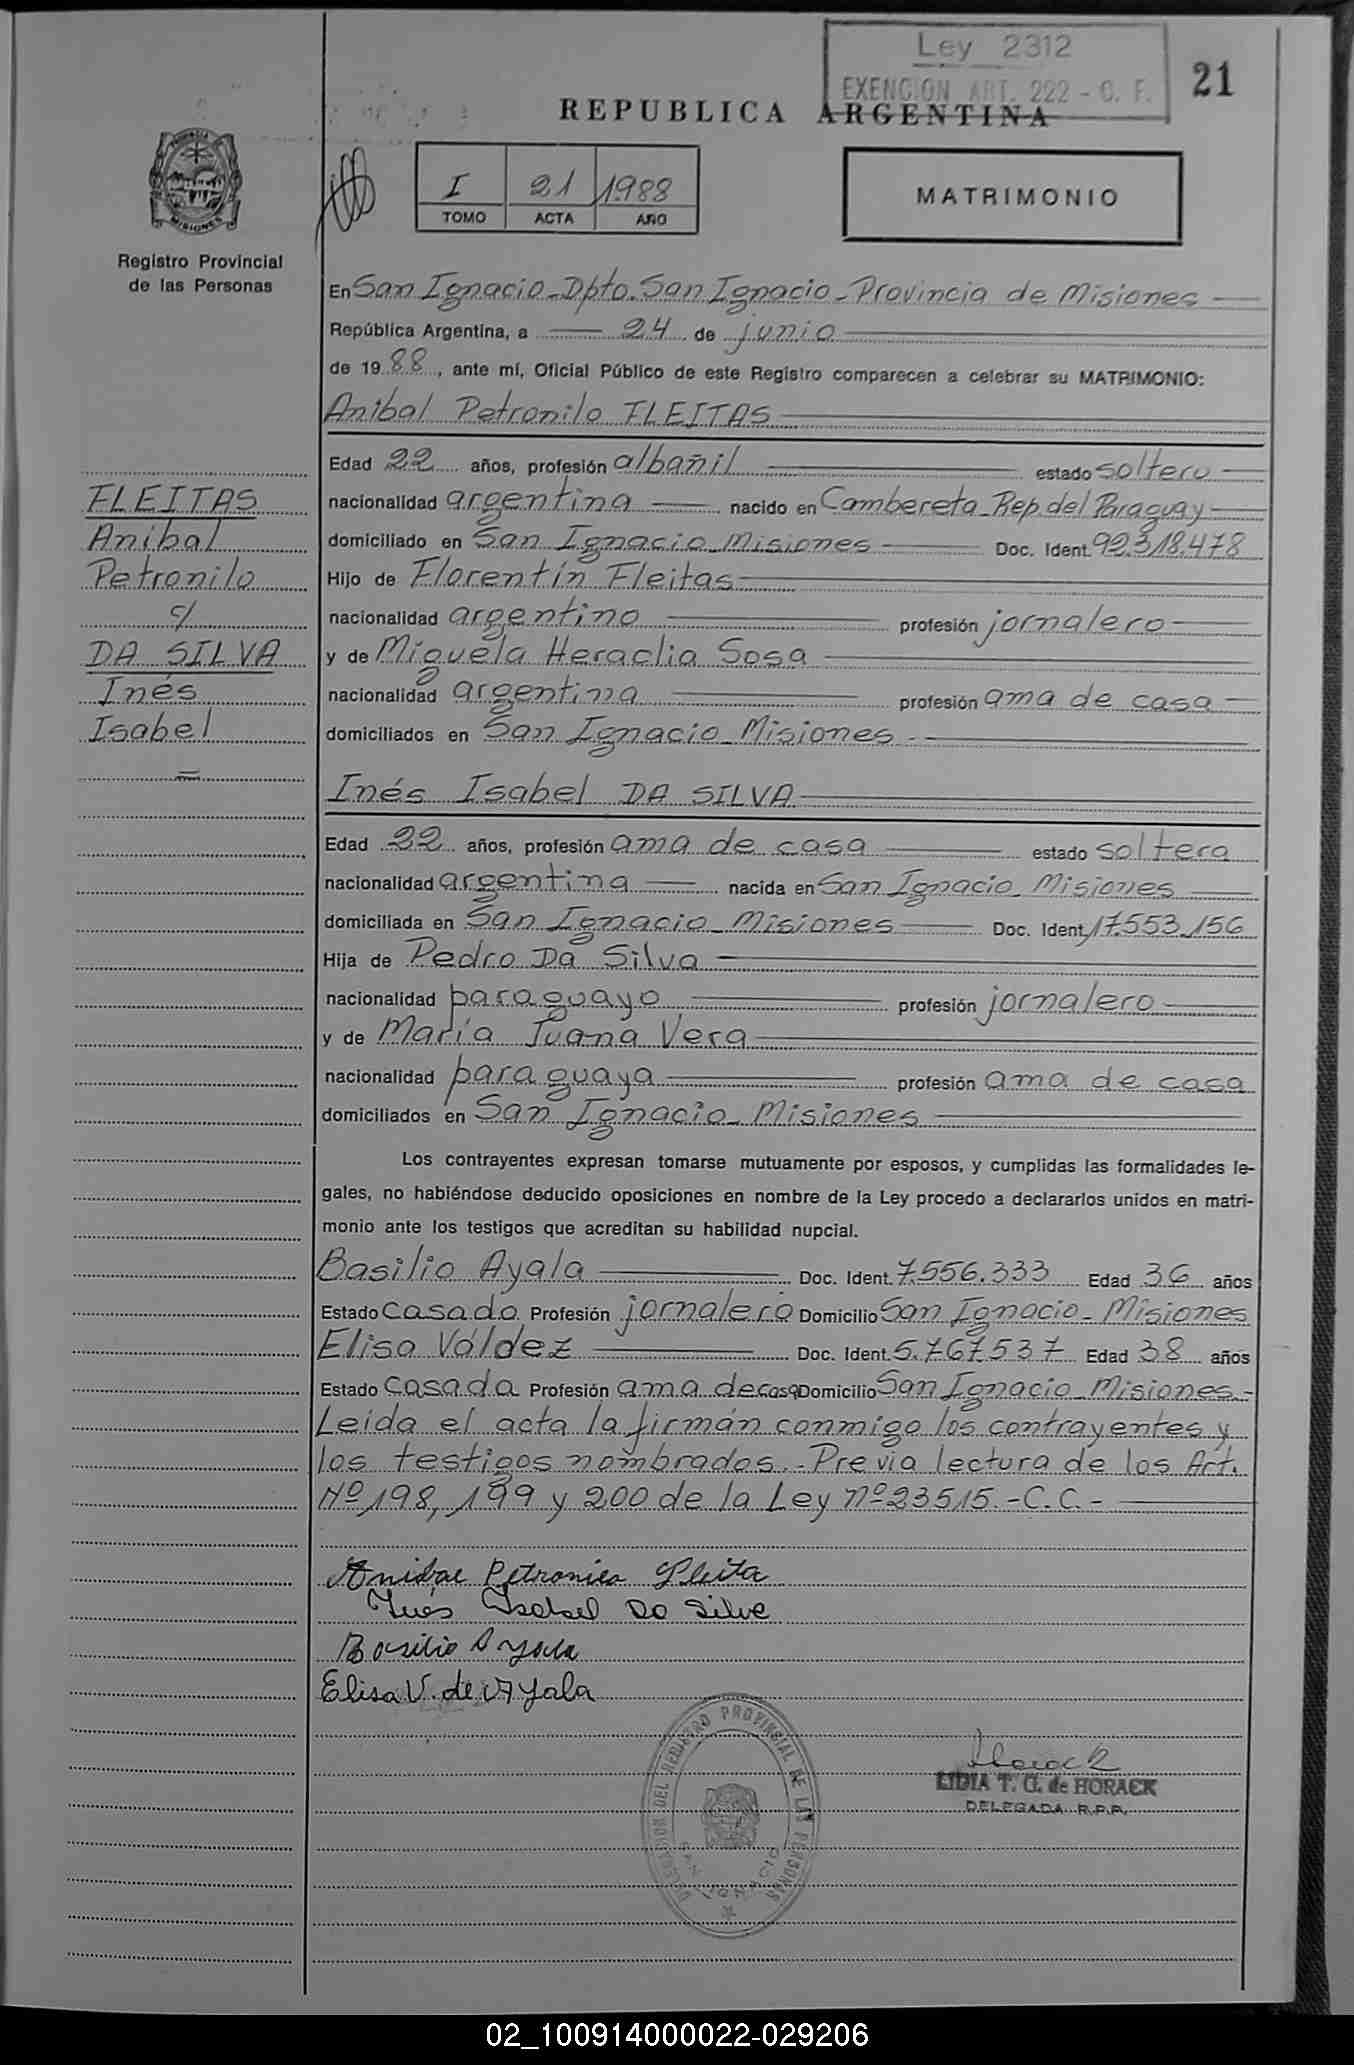 Ley 2312
EXENCION ART. 222 - C. F.
21
REPUBLICA ARGENTINA
I 21 1988
TOMO ACTA AÑO
MATRIMONIO
PROVINCIA
MISIONES
Registro Provincial
de las Personas
En San Ignacio - Dpto. San Ignacio - Provincia de Misiones
República Argentina, a 24 de junio
de 19 88, ante mí, Oficial Público de este Registro comparecen a celebrar su MATRIMONIO:
Anibal Petronilo FLEITAS
Edad 22 años, profesión albañil estado soltero
nacionalidad argentina nacido en Cambereta - Rep. del Paraguay
domiciliado en San Ignacio - Misiones Doc. Ident. 92.318.478
Hijo de Florentín Fleitas
nacionalidad argentino profesión jornalero
y de Miguela Heraclia Sosa
nacionalidad argentina profesión ama de casa
domiciliados en San Ignacio - Misiones
FLEITAS
Anibal
Petronilo
c/
DA SILVA
Inés
Isabel
=
Inés Isabel DA SILVA
Edad 22 años, profesión ama de casa estado soltera
nacionalidad argentina nacida en San Ignacio - Misiones
domiciliada en San Ignacio - Misiones Doc. Ident. 17.553.156
Hija de Pedro Da Silva
nacionalidad paraguayo profesión jornalero
y de María Juana Vera
nacionalidad paraguaya profesión ama de casa
domiciliados en San Ignacio - Misiones
Los contrayentes expresan tomarse mutuamente por esposos, y cumplidas las formalidades le-
gales, no habiéndose deducido oposiciones en nombre de la Ley procedo a declararlos unidos en matri-
monio ante los testigos que acreditan su habilidad nupcial.
Basilio Ayala Doc. Ident. 7.556.333 Edad 36 años
Estado casado Profesión jornalero Domicilio San Ignacio - Misiones
Elisa Váldez Doc. Ident. 5.767.537 Edad 38 años
Estado casada Profesión ama de casa Domicilio San Ignacio - Misiones.-
Leida el acta la firmán conmigo los contrayentes y
los testigos nombrados.- Previa lectura de los Art.
Nº 198, 199 y 200 de la Ley nº 23515.- C.C.-
Anibal Petronilo Fleita
Inés Isabel Da Silva
Basilio Ayala
Elisa V. de Ayala
DELEGACION DEL REGISTRO PROVINCIAL DE LAS PERSONAS
SAN IGNACIO
Horack
LIDIA T. G. de HORACK
DELEGADA R.P.P.
02_100914000022-029206